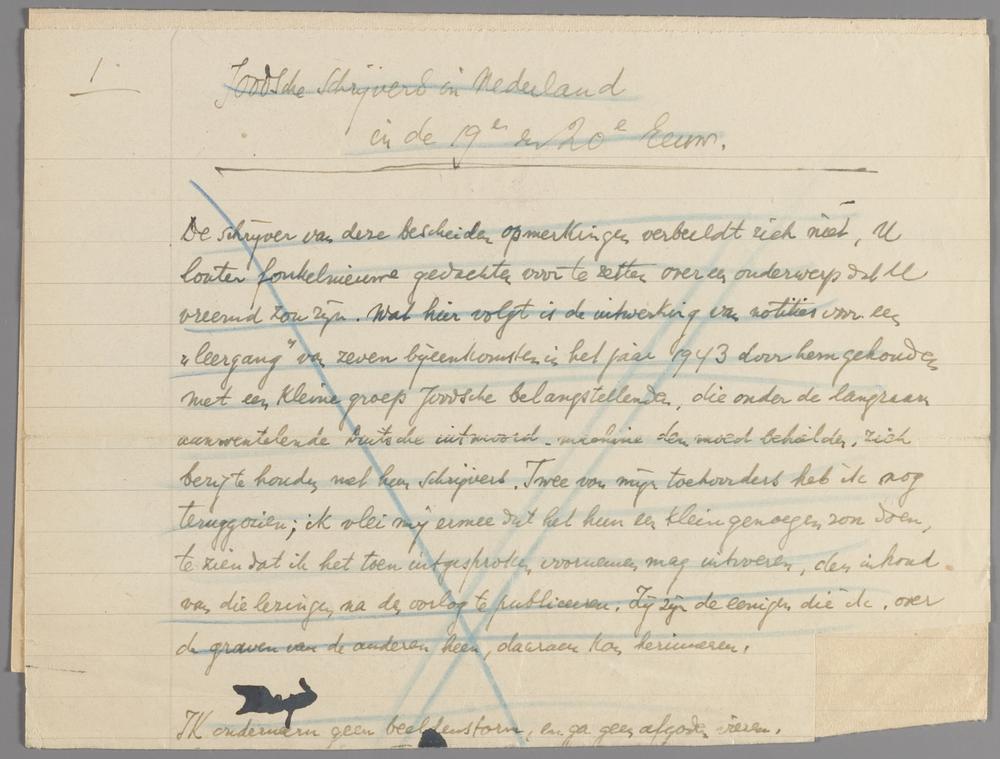 1.
Joodsche Schrijvers in Nederland
in de 19e en 20e Eeuw.
De schrijver van deze bescheiden opmerkingen verbeeldt zich niet, U
louter fonkelnieuwe gedachten voor te zetten over een onderwerp dat U
vreemd zou zijn. Wat hier volgt is de uitwerking van notities voor een
„leergang" van zeven bijeenkomsten in het jaar 1943 door hem gehouden
met een kleine groep Joodsche belangstellenden, die onder de langzaam
aanwentelende Duitsche uitmoord-machine den moed behielden, zich
bezig te houden met hun Schrijvers. Twee van mijn toehoorders heb ik nog
teruggezien; ik vlei mij ermee dat het hun een klein genoegen zou doen,
te zien dat ik het toen uitgesproken voornemen mag uitvoeren, den inhoud
van die lezingen na den oorlog te publiceeren. Zij zijn de eenigen die ik, over
de graven van de anderen heen, daaraan kan herinneren.
Ik onderneem geen beeldenstorm, en ga geen afgoden vieren.